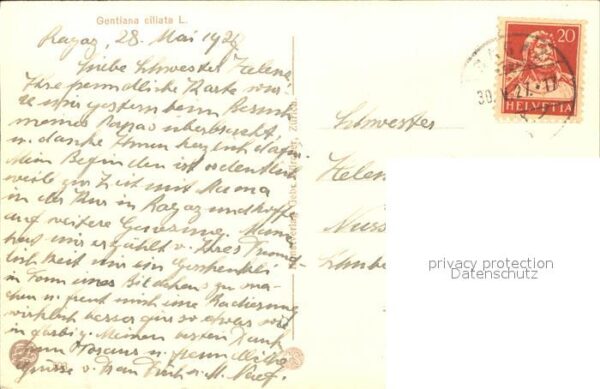 Gentiana ciliata L.
Ragaz, 28. Mai 1927
Liebe Schwester Helena!
Ihre freundliche Karte wur-
de mir gestern beim Besuch
meines Papas überbracht,
u. danke Ihnen herzlich dafür.
Mein Befinden ist ordentlich
weile zur Zeit mit Mama
in der Kur in Ragaz und hoffe
auf weitere Genesung. Mama
hat mir erzählt v. Ihrer Freund-
lichkeit mir ein Geschenkli
in Form eines Bildchens zu ma-
chen u. freut mich eine Radierung
wirklich besser
farbig. Meinen besten Dank
zum Voraus u. freundliche
Grüsse v. Frau
Schwester
Helen
20
HELVETIA
30. V. 27. 17
privacy protection
Datenschutz